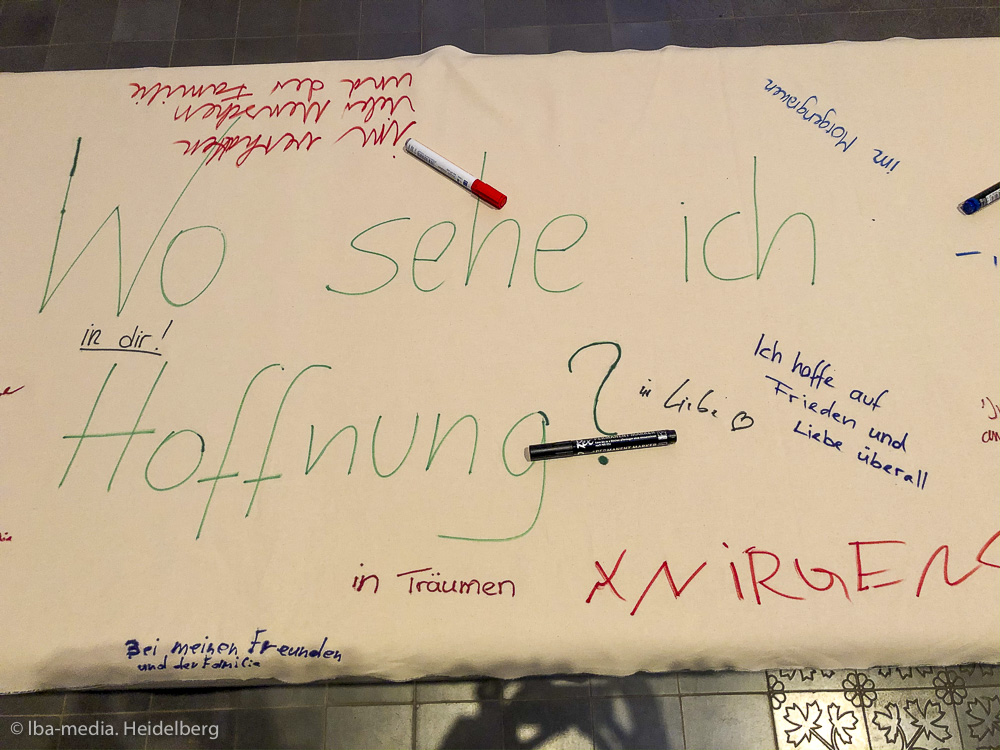 im verhalten
vieler Menschen
und der Familie
im Morgengrauen
Wo sehe ich
in dir!
Hoffnung?
in Liebe
Ich hoffe auf
Frieden und
Liebe überall
PERMANENT MARKER
in Träumen
XNiRGENS
Bei meinen Freunden
und der Familie
© lba-media. Heidelberg